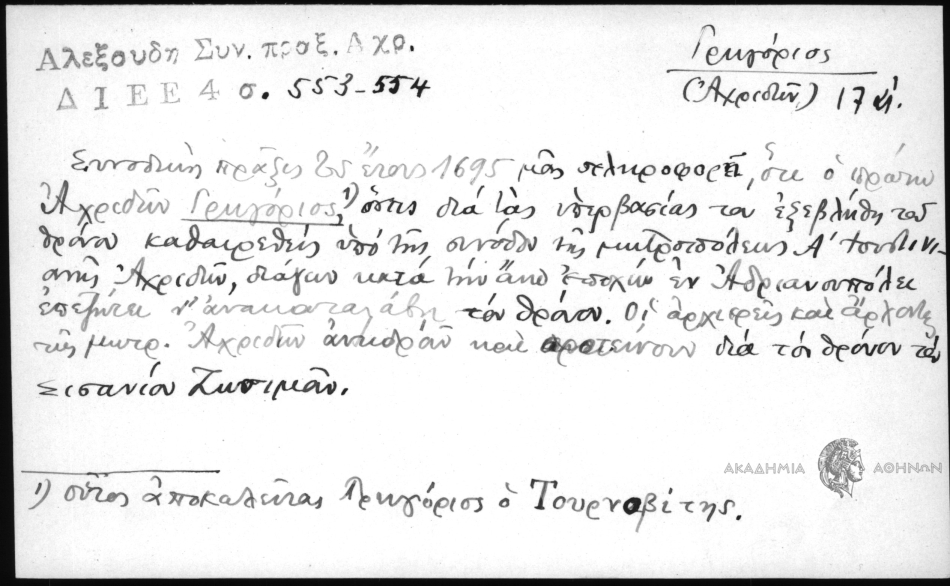 Αλεξουδη Συν. πραξ. Αχρ.
ΔΙΕΕ 4 σ. 553-554
Γρηγόριος
(Ἀχριδῶν) 17 αἰ.
Συνοδικὴ πρᾶξις τοῦ ἔτους 1695 μᾶς πληροφορεῖ, ὅτι ὁ πρώην
Ἀχριδῶν Γρηγόριος,¹⁾ ὅστις διὰ τὰς ὑπερβασίας του ἐξεβλήθη τοῦ
θρόνου καθαιρεθεὶς ὑπὸ τῆς συνόδου τῆς μητροπόλεως Α' Ἰουστινι-
ανῆς Ἀχριδῶν, διάγων κατὰ τὴν ἄνω ἐποχὴν ἐν Ἀδριανουπόλει
ἐπεζήτει ν' ἀνακαταλάβῃ τὸν θρόνον. Οἱ ἀρχιερεῖς καὶ ἄρχοντες
τῆς μητρ. Ἀχριδῶν ἀντιδροῦν καὶ προτείνουν διὰ τὸν θρόνον τὸν
Σισανίου Ζωσιμᾶν.
1) οὗτος ἀποκαλεῖται Γρηγόριος ὁ Τουρνοβίτης.
ΑΚΑΔΗΜΙΑ ΑΘΗΝΩΝ